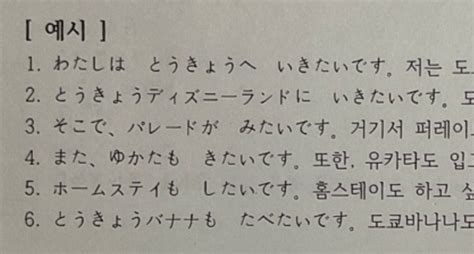 [ 예시 ]
1. わたしは とうきょうへ いきたいです。저는 도
2. とうきょうディズニーランドに いきたいです。도
3. そこで、パレードが みたいです。거기서 퍼레이
4. また、ゆかたも きたいです。또한, 유카타도 입
5. ホームステイも したいです。홈스테이도 하고 싶
6. とうきょうバナナも たべたいです。도쿄바나나도